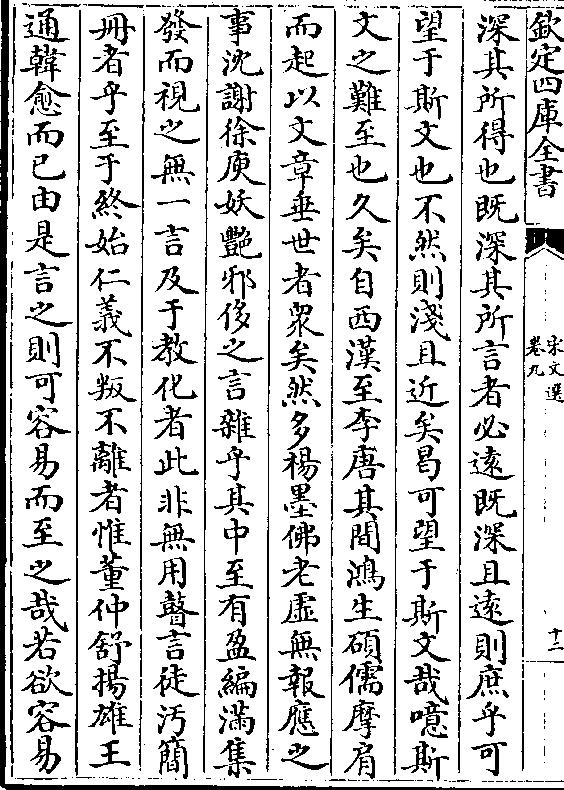 欽定四庫全書
宋文選
卷九
十二
深其所得也既深其所言者必遠既深且遠則庶乎可
望于斯文也不然則淺且近矣曷可望于斯文哉噫斯
文之難至也久矣自西漢至李唐其間鴻生碩儒摩肩
而起以文章垂世者衆矣然多楊墨佛老虛無報應之
事沈謝徐庾妖艷邪侈之言雜乎其中至有盈編滿集
發而視之無一言及于教化者此非無用瞽言徒汚簡
冊者乎至于終始仁義不叛不離者惟董仲舒揚雄王
通韓愈而已由是言之則可容易而至之哉若欲容易